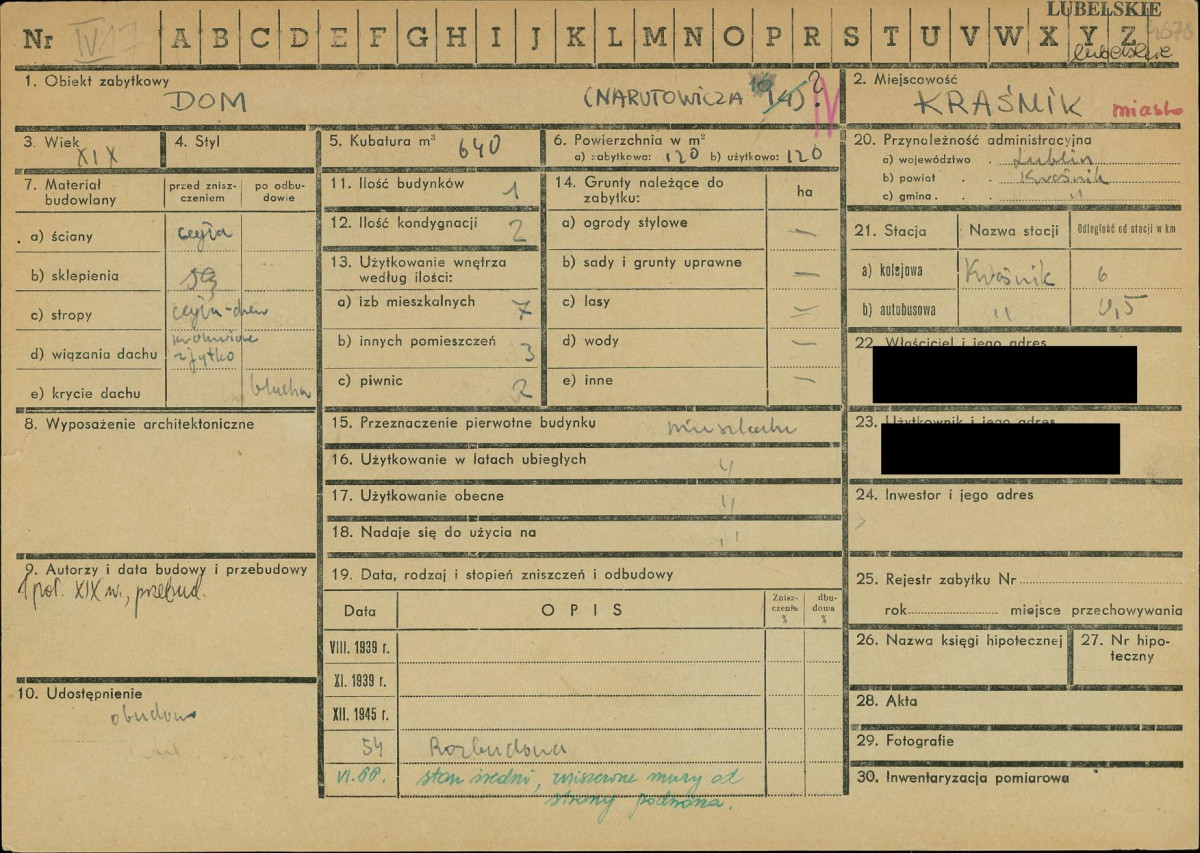 LUBELSKIE
Nr IV17 A B C D E F G H I J K L M N O P R S T U V W X Y Z
lubelskie
1. Obiekt zabytkowy
DOM (NARUTOWICZA 16 14) ?
2. Miejscowość
KRAŚNIK miasto
3. Wiek
XIX
4. Styl
5. Kubatura m³ 640
6. Powierzchnia w m²
a) zabytkowa: 120 b) użytkowo: 120
20. Przynależność administracyjna
a) województwo . Lublin
b) powiat . . Kraśnik
c) gmina . . . "
7. Materiał budowlany
przed znisz-
czeniem
po odbu-
dowie
a) ściany cegła
b) sklepienia
c) stropy cegła-drew
d) wiązania dachu
e) krycie dachu blacha
11. Ilość budynków 1
12. Ilość kondygnacji 2
13. Użytkowanie wnętrza
według ilości:
a) izb mieszkalnych 7
b) innych pomieszczeń 3
c) piwnic 2
14. Grunty należące do
zabytku:
ha
a) ogrody stylowe —
b) sady i grunty uprawne —
c) lasy —
d) wody —
e) inne —
21. Stacja Nazwa stacji Odległość od stacji w km
a) kolejowa Kraśnik 6
b) autobusowa " 0,5
22. Właściciel i jego adres
23. Użytkownik i jego adres
24. Inwestor i jego adres
8. Wyposażenie architektoniczne
15. Przeznaczenie pierwotne budynku mieszkalne
16. Użytkowanie w latach ubiegłych "
17. Użytkowanie obecne "
18. Nadaje się do użycia na "
9. Autorzy i data budowy i przebudowy
1 poł. XIX w., przebud.
19. Data, rodzaj i stopień zniszczeń i odbudowy
Data OPIS
Znisz-
czenia
%
dbu-
dowa
%
VIII. 1939 r.
XI. 1939 r.
XII. 1945 r.
54 Rozbudowa
VI.68. stan średni, zniszczone mury od
strony podwórza.
25. Rejestr zabytku Nr
rok miejsce przechowywania
26. Nazwa księgi hipotecznej
27. Nr hipo-
teczny
10. Udostępnienie
28. Akta
29. Fotografie
30. Inwentaryzacja pomiarowa